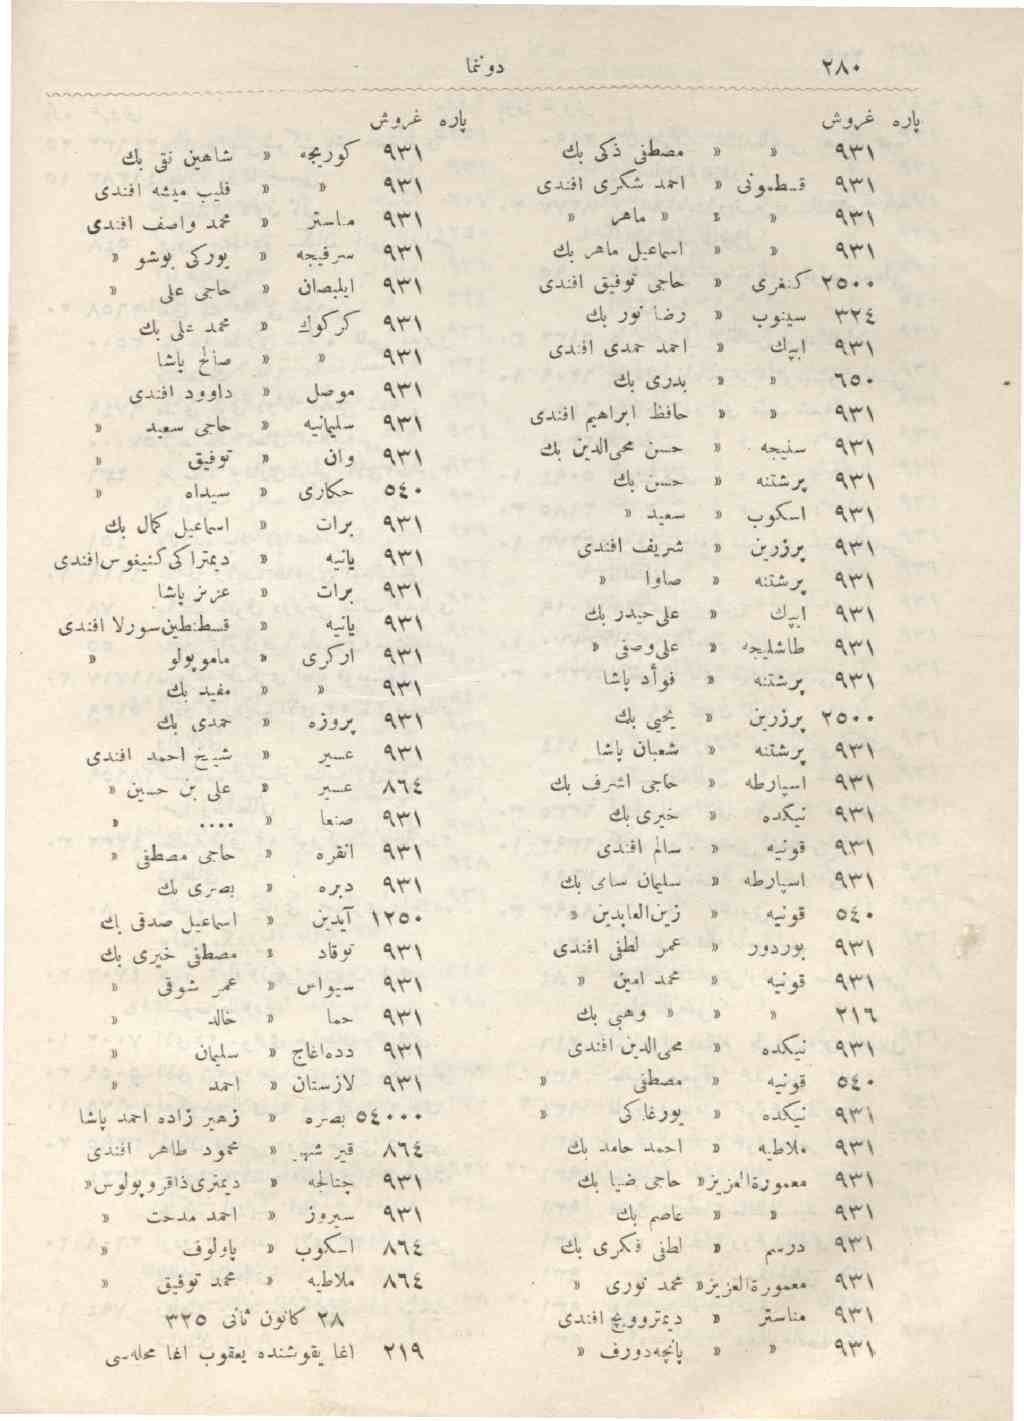 ٢٨٠
دونما
پاره غروش
٩٣١ « « مصطفی ذکی بك
٩٣١ قسطمونی « احمد شکری افندی
٩٣١ « « « ماهر «
٩٣١ « « اسماعیل ماهر بك
٢٥٠٠ کنغری « حاجی توفیق افندی
٣٢٤ سینوب « رضا نور بك
٩٣١ ایپك « احمد حمدی افندی
٦٥٠ « « بدری بك
٩٣١ « « حافظ ابراهیم افندی
٩٣١ سنیجه « حسن محی‌الدین بك
٩٣١ پرشتنه « حسن بك
٩٣١ اسکوب « سعید «
٩٣١ پرزرین « شریف افندی
٩٣١ پرشتنه « صاوا «
٩٣١ ایپك « علی‌حیدر بك
٩٣١ طاشلیجه « علی‌وصفی «
٩٣١ پرشتنه « فوأد پاشا
٢٥٠٠ پرزرین « یحیی بك
٩٣١ پرشتنه « شعبان پاشا
٩٣١ اسپارطه « حاجی اشرف بك
٩٣١ نیکده « خیری بك
٩٣١ قونیه « سالم افندی
٩٣١ اسپارطه « سلیمان سامی بك
٥٤٠ قونیه « زین‌العابدین «
٩٣١ بوردور « عمر لطفی افندی
٩٣١ قونیه « محمد امین «
٢١٦ « « « وهبی بك
٩٣١ نیکده « محی‌الدین افندی
٥٤٠ قونیه « مصطفی «
٩٣١ نیکده « یورغاکی «
٩٣١ ملاطیه « احمد حامد بك
٩٣١ معمورةالعزیز« حاجی ضیا بك
٩٣١ « « عاصم بك
٩٣١ درسم « لطفی فکری بك
٩٣١ معمورةالعزیز« محمد نوری «
٩٣١ مناستر « دیمتروویچ افندی
٩٣١ « « پانچه‌دورف «
پاره غروش
٩٣١ کوریجه « شاهین تقی بك
٩٣١ « « فلیب میشه افندی
٩٣١ مناستر « محمد واصف افندی
٩٣١ سرفیجه « یورکی بوشو «
٩٣١ ایلبصان « حاجی علی «
٩٣١ کرکوك « محمد علی بك
٩٣١ « « صالح پاشا
٩٣١ موصل « داوود افندی
٩٣١ سلیمانیه « حاجی سعید «
٩٣١ وان « توفیق «
٥٤٠ حکاری « سیداه «
٩٣١ برات « اسماعیل کمال بك
٩٣١ یانیه « دیمتراکی‌کنیغوس‌افندی
٩٣١ برات « عزیز پاشا
٩٣١ یانیه « قسطنطین‌سورلا افندی
٩٣١ ارکری « ماموپولو «
٩٣١ « « مفید بك
٩٣١ پروزه « حمدی بك
٩٣١ عسیر « شیخ احمد افندی
٨٦٤ عسیر « علی بن حسین «
٩٣١ صنعا « .... «
٩٣١ انقره « حاجی مصطفی «
٩٣١ دبره « بصری بك
١٢٥٠ آیدین « اسماعیل صدقی بك
٩٣١ توقاد « مصطفی خیری بك
٩٣١ سیواس « عمر شوقی «
٩٣١ حما « خالد «
٩٣١ دده‌اغاج « سلیمان «
٩٣١ لازستان « احمد «
٥٤٠٠٠ بصره « زهیر زاده احمد پاشا
٨٦٤ قیر شهر « محمود طاهر افندی
٩٣١ چتالجه « دیمتری‌ذافروپولوس«
٩٣١ سیروز « احمد مدحت «
٨٦٤ اسکوب « پاولوف «
٨٦٤ ملاطیه « محمد توفیق «
٢٨ کانون ثانی ٣٢٥
٢١٩ اغا یقوشنده یعقوب اغا محله‌سی